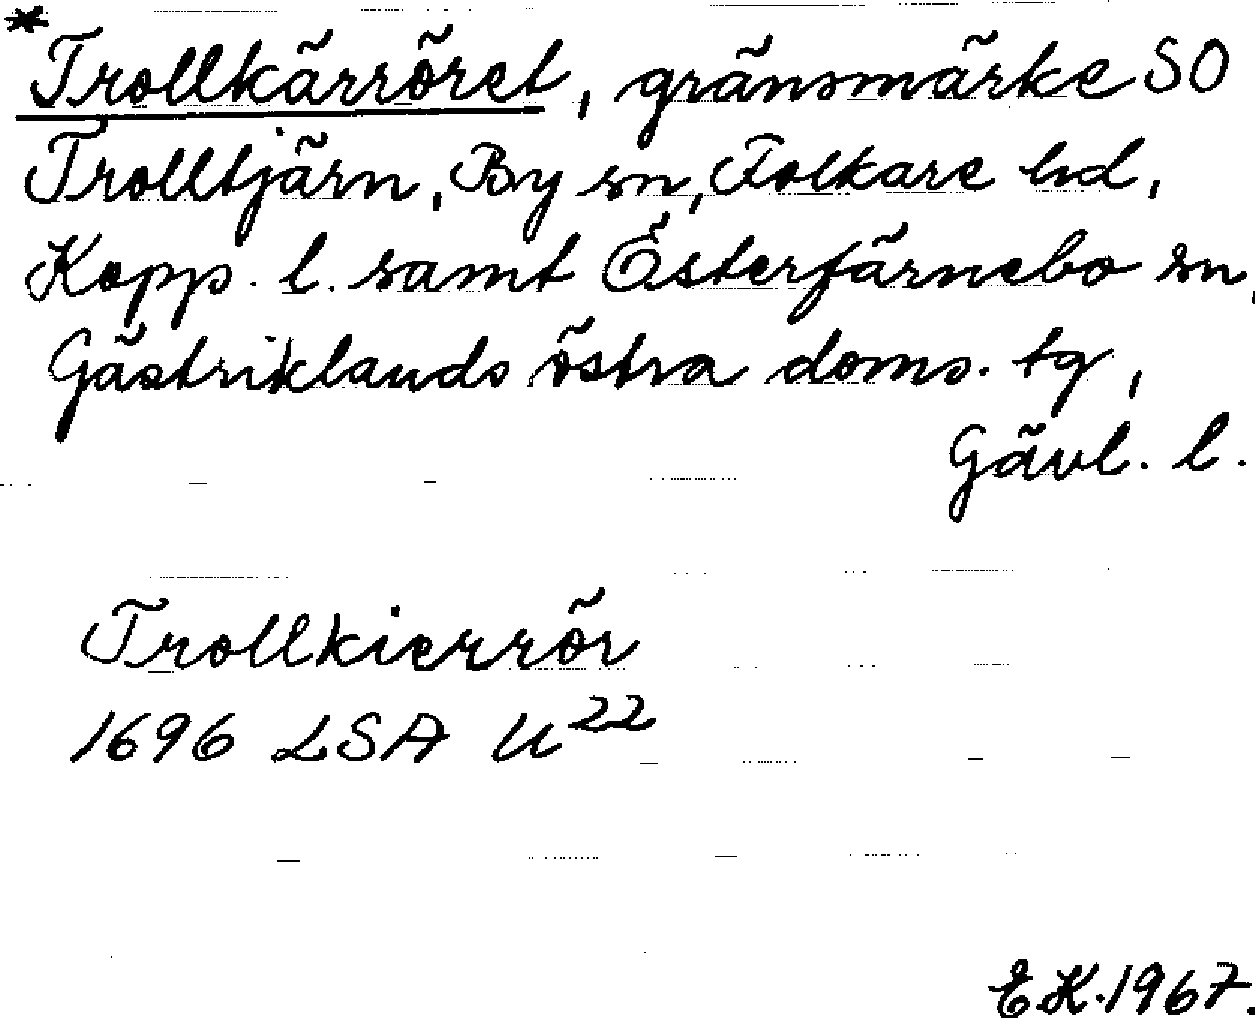 *Trollkärröret, gränsmärke SO
Trolltjärn, By sn, Folkare hd,
Kopp. l. samt Österfärnebo sn,
Gästriklands östra doms. tg,
Gävl. l.
Trollkierrör
1696 LSA U22
E.K. 1967.